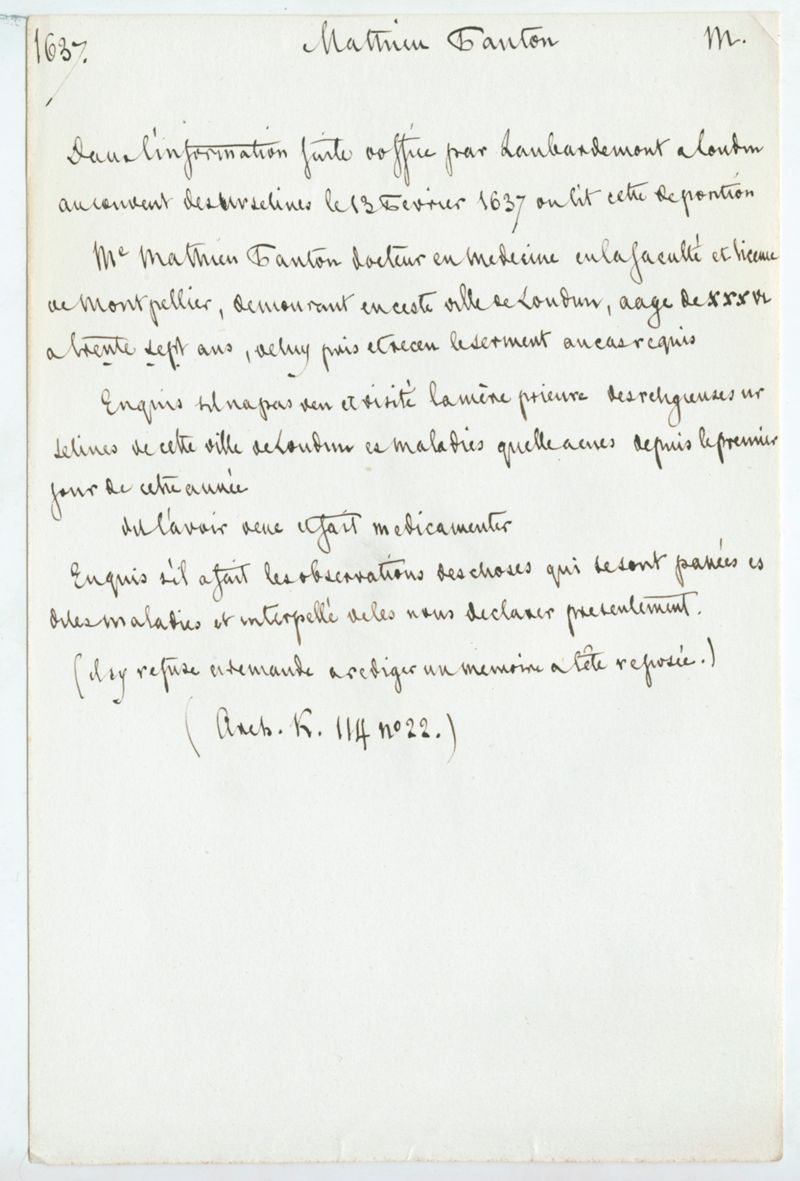 1637. Matthieu Fanton M.
Dans l'information faite d'office par Laubardemont a Loudun
au couvent des Urselines le 13 Fevrier 1637 on lit cette deposition
Me Mathieu Fanton docteur en medecine en la faculté et licencié
de Montpellier, demourant en ceste ville de Loudun, aagé de XXXVI
a trente sept ans, de luy pris et receu le serment au cas requis
Enquis s'il n'a pas veu et visité la mère prieure des religieuses ur
selines de cette ville de Loudun es maladies quelle a eues depuis le premier
jour de cette année
dit l'avoir veue et fait medicamenter
Enquis s'il a fait les observations des choses qui se sont passées es
dites maladies et interpellé de les nous declarer presentement.
(il s'y refuse et demande a rediger un memoire a tête reposée.)
(Arch. K. 114 no 22.)